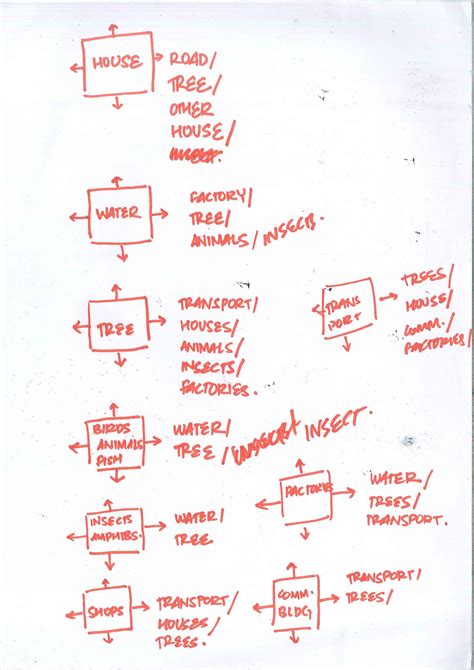 HOUSE
ROAD/
TREE/
OTHER
HOUSE/
INSECT.
WATER
FACTORY/
TREE/
ANIMALS/INSECTS.
TREE
TRANSPORT/
HOUSES/
ANIMALS/
INSECTS/
FACTORIES.
TRANS
PORT
TREES/
HOUSE/
COMM./
FACTORIES/
BIRDS
ANIMALS
FISH
WATER/
TREE/ INSECT.
FACTORIES
WATER/
TREES/
TRANSPORT.
INSECTS
AMPHIBS.
WATER/
TREE.
SHOPS
TRANSPORT/
HOUSES/
TREES.
COMM.
BLDG
TRANSPORT/
TREES/